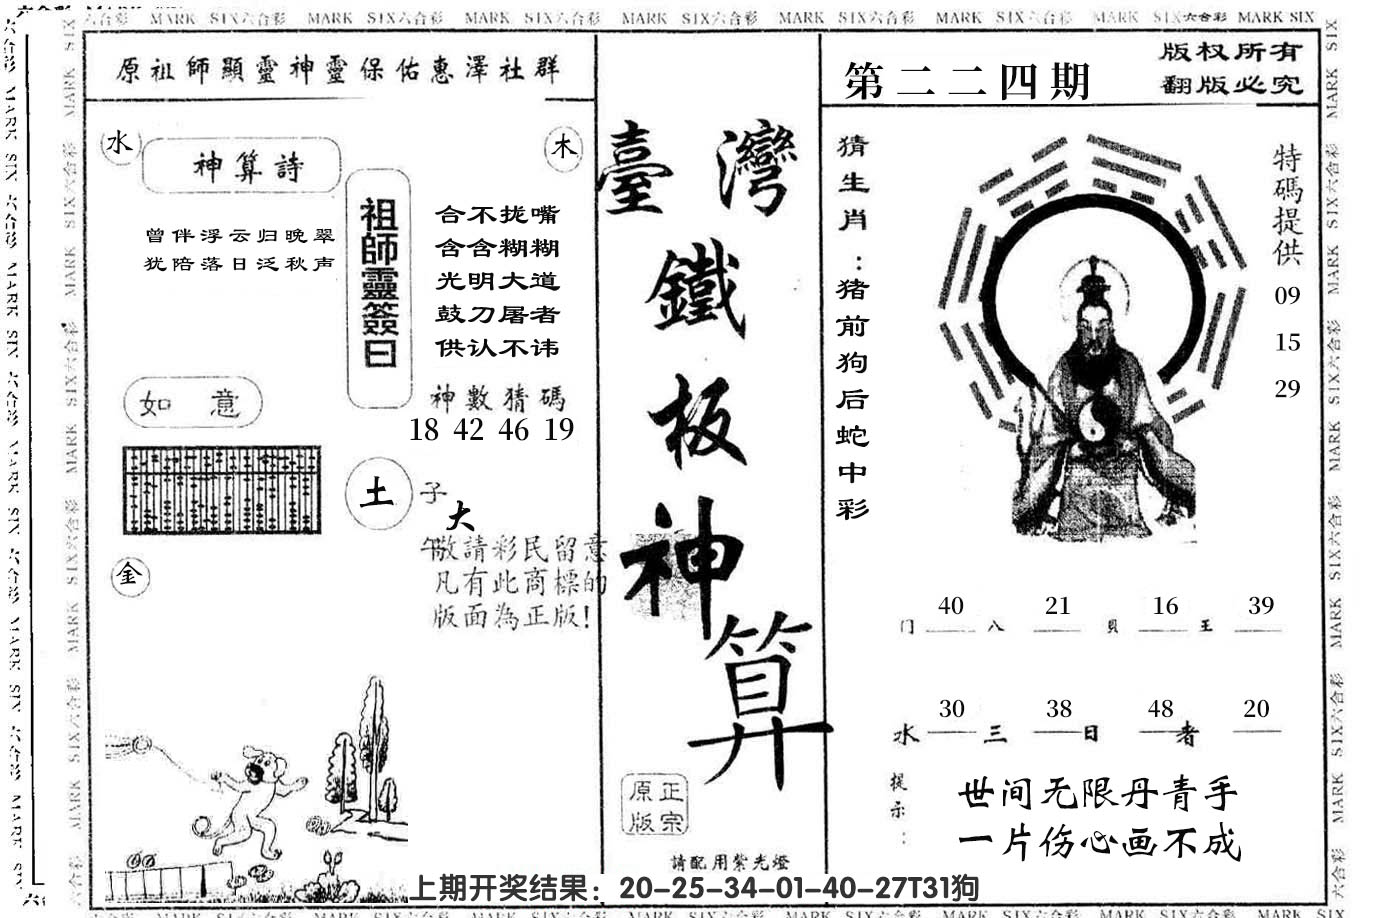 MARK SIX六合彩 MARK SIX六合彩 MARK SIX六合彩 MARK SIX六合彩 MARK SIX六合彩 MARK SIX六合彩 MARK SIX六合彩 MARK SIX
原祖師顯靈神靈保佑惠澤社群
水
神算詩
木
曾伴浮云归晚翠
犹陪落日泛秋声
祖師靈簽曰
合不拢嘴
含含糊糊
光明大道
鼓刀屠者
供认不讳
神數猜碼
18 42 46 19
如意
土
子
大
午
敬請彩民留意
凡有此商標的
版面為正版!
金
臺灣
鐵
板
神
算
正宗
原版
請配用紫光燈
第二二四期
版权所有
翻版必究
猜生肖:猪前狗后蛇中彩
特碼提供
09
15
29
40 21 16 39
门 八 貝 王
30 38 48 20
水 三 日 者
提示:
世间无限丹青手
一片伤心画不成
上期开奖结果：20-25-34-01-40-27T31狗